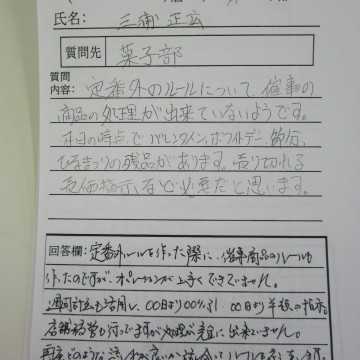 氏名: 三浦 正広
質問先 菓子部
質問
内容: 定番外のルールについて、催事の
商品の処理が出来ていないようです。
本日の時点でバレンタイン、ホワイトデー、節分、
ひなまつりの残品があります。売り切れる
売価指示、など必要だと思います。
回答欄: 定番外ルールを作った際に、催事商品のルールも
作ったのですが、オペレーションが上手くできていません。
週間計画も活用し、○○日より○○%引 ○○日より半額の指示。
店舗経営も行ってますが処理が完全に出来ません。
再度、どのような